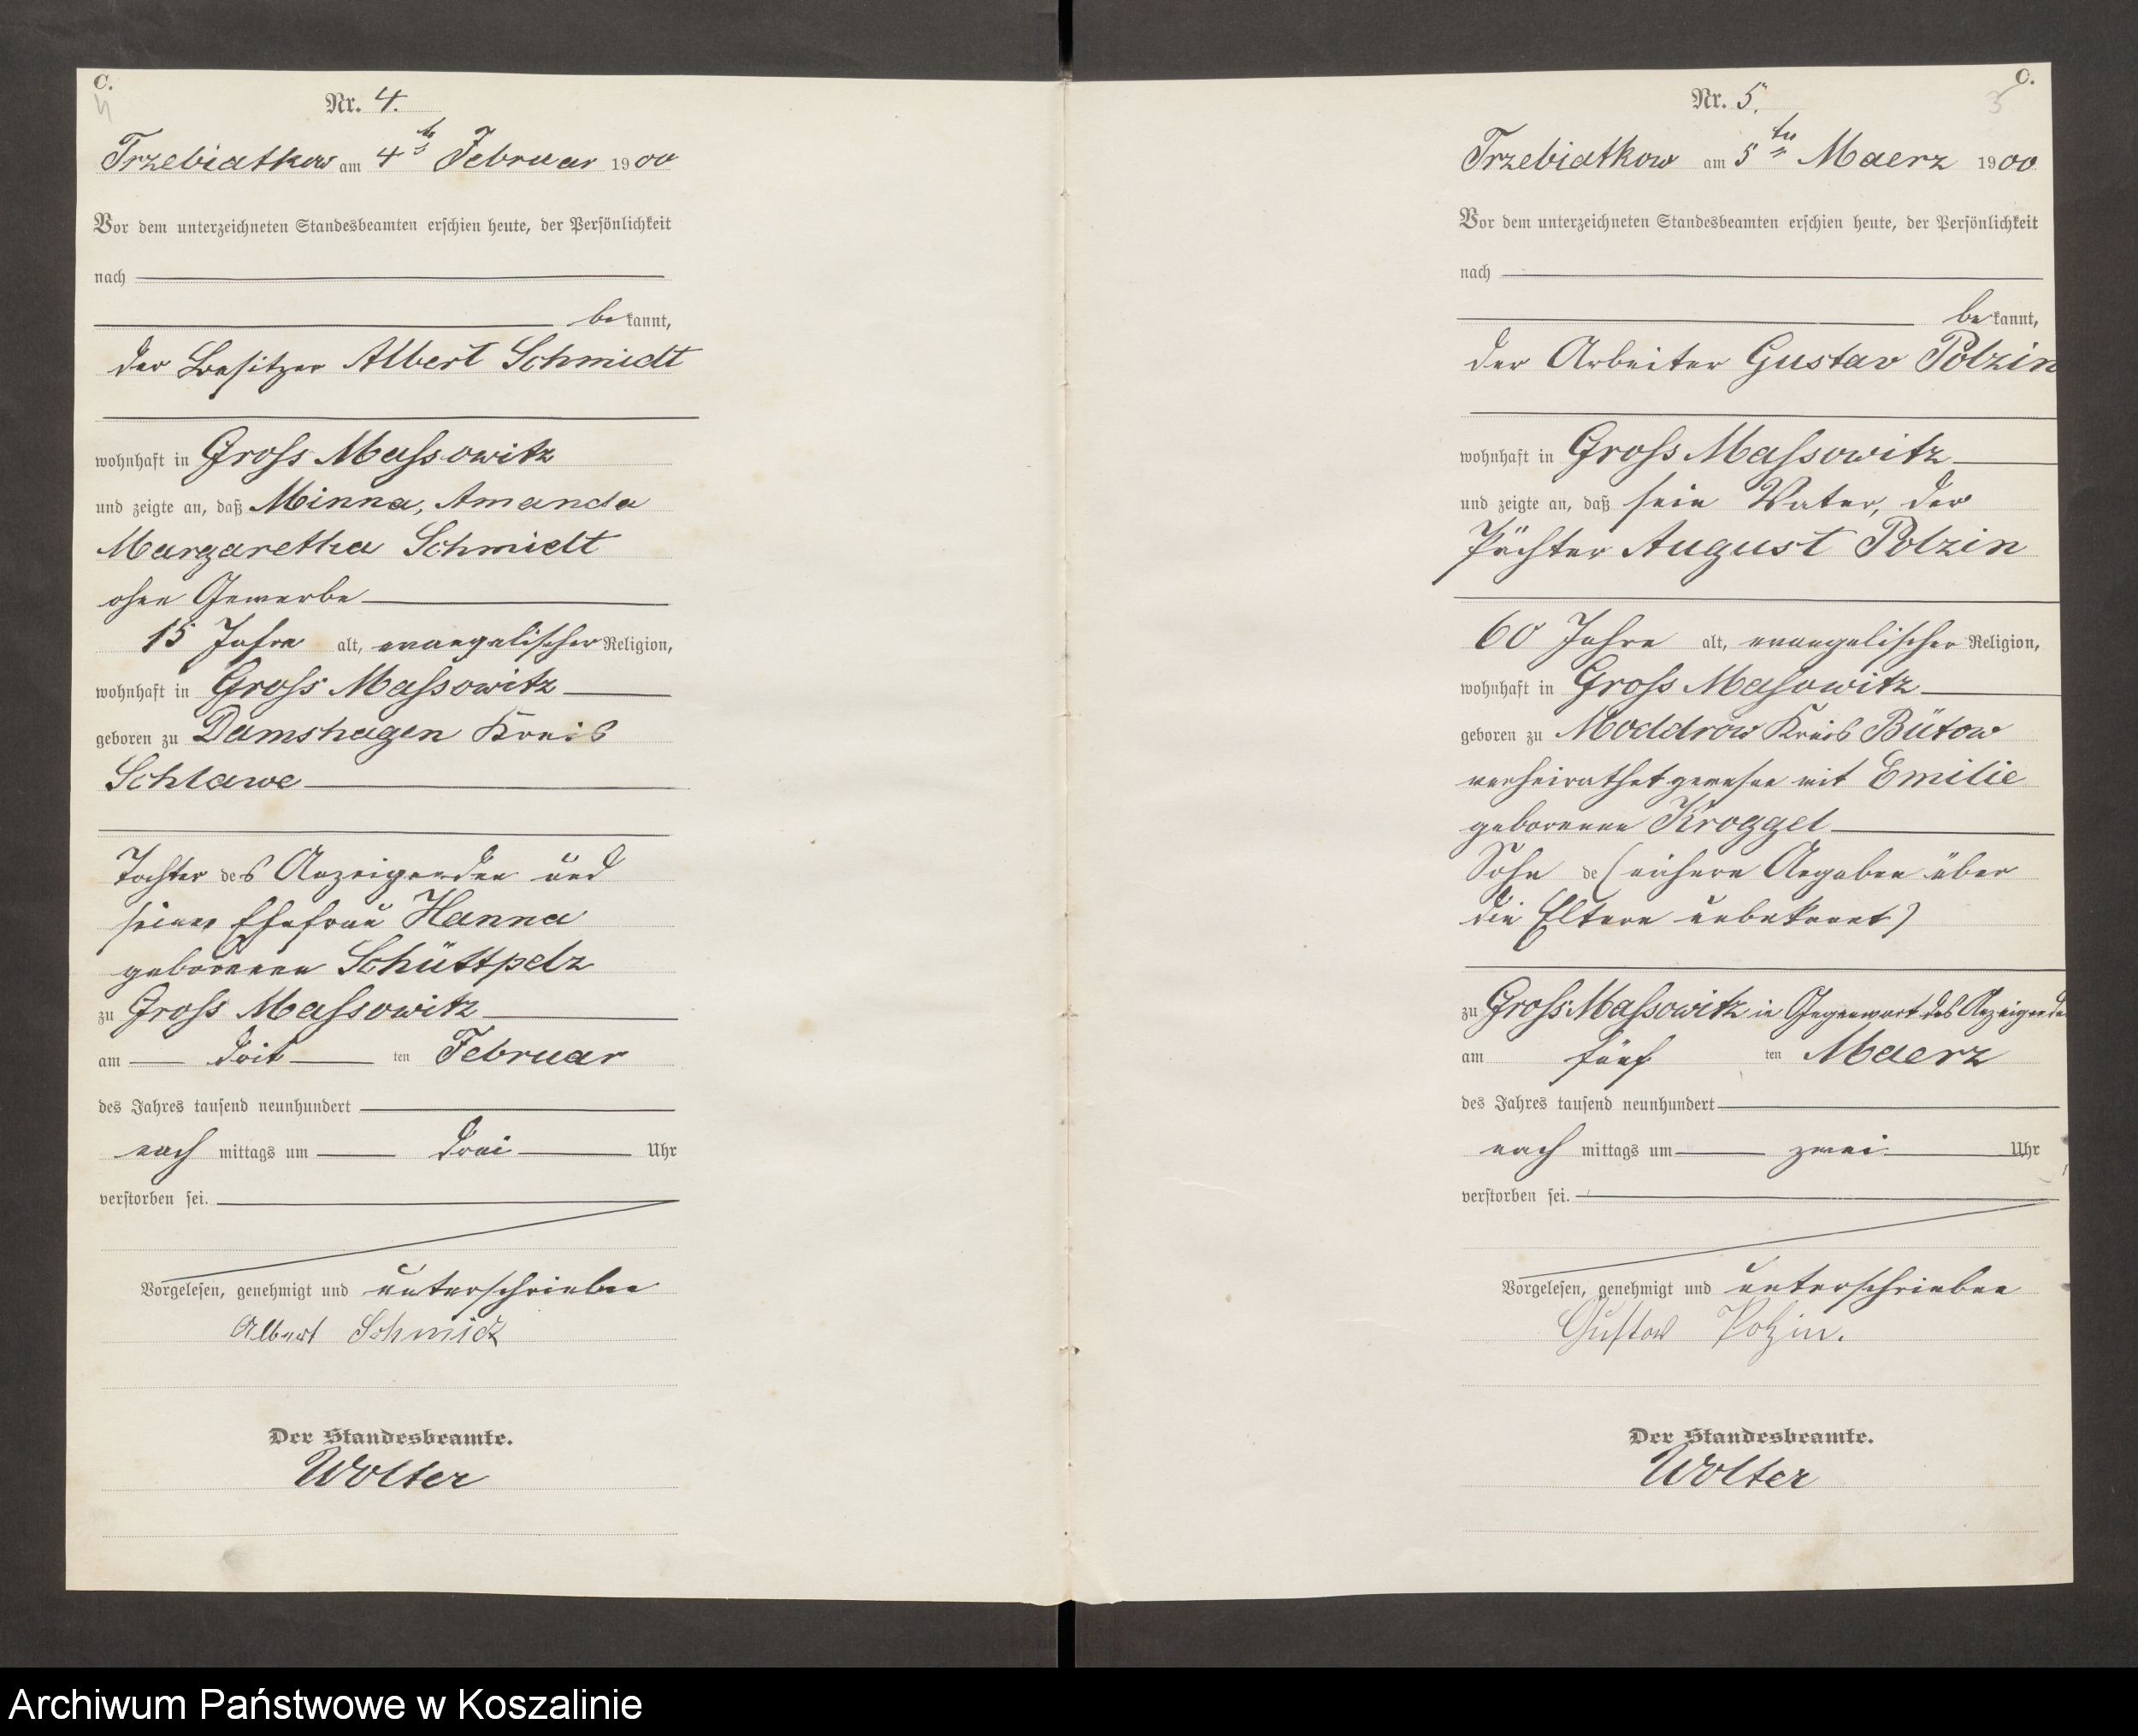 C.
4
Nr. 4.
Trzebiatkow am 4ten Februar 1900
Vor dem unterzeichneten Standesbeamten erschien heute, der Persönlichkeit
nach
bekannt,
der Besitzer Albert Schmidt
wohnhaft in Gross Massowitz
und zeigte an, daß Minna, Amanda
Margaretha Schmidt
ohne Gewerbe
15 Jahre alt, evangelischer Religion,
wohnhaft in Gross Massowitz
geboren zu Damshagen Kreis
Schlawe
Tochter des Anzeigenden und
seiner Ehefrau Hanna
geborenen Schüttpelz
zu Gross Massowitz
am drit ten Februar
des Jahres tausend neunhundert
nach mittags um drei Uhr
verstorben sei.
Vorgelesen, genehmigt und unterschrieben
Albert Schmidt
Der Standesbeamte.
Wolter
C.
5
Nr. 5.
Trzebiatkow am 5ten Maerz 1900
Vor dem unterzeichneten Standesbeamten erschien heute, der Persönlichkeit
nach
bekannt,
der Arbeiter Gustav Polzin
wohnhaft in Gross Massowitz
und zeigte an, daß sein Vater, der
Pächter August Polzin
60 Jahre alt, evangelischer Religion,
wohnhaft in Gross Massowitz
geboren zu Moddrow Kreis Bütow
verheirathet gewesen mit Emilie
geborenen Kroggel
Sohn de (nähere Angaben über
die Eltern unbekannt)
zu Gross Massowitz in Gegenwart des Anzeigenden
am fünf ten Maerz
des Jahres tausend neunhundert
nach mittags um zwei Uhr
verstorben sei.
Vorgelesen, genehmigt und unterschrieben
Gustav Polzin.
Der Standesbeamte.
Wolter
Archiwum Państwowe w Koszalinie